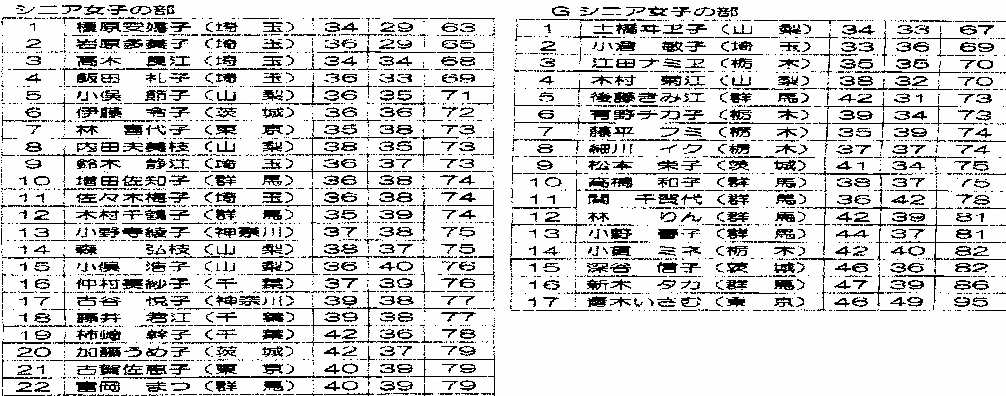 シニア女子の部
1 榎原安嬉子（埼 玉） 34 29 63
2 岩原多美子（埼 玉） 36 29 65
3 高木 良江（埼 玉） 34 34 68
4 飯田 礼子（埼 玉） 36 33 69
5 小俣 節子（山 梨） 36 35 71
6 伊藤 令子（茨 城） 36 36 72
7 林 喜代子（東 京） 35 38 73
8 内田夫美枝（山 梨） 38 35 73
9 鈴木 静江（埼 玉） 36 37 73
10 増田佐知子（群 馬） 36 38 74
11 佐々木梅子（埼 玉） 36 38 74
12 木村千鶴子（群 馬） 35 39 74
13 小野寺綾子（神奈川） 37 38 75
14 森 弘枝（山 梨） 38 37 75
15 小俣 浩子（山 梨） 36 40 76
16 仲村美紗子（千 葉） 37 39 76
17 古谷 悦子（神奈川） 39 38 77
18 藤井 君江（千 葉） 39 38 77
19 柿崎 幹子（千 葉） 42 36 78
20 加藤うめ子（茨 城） 42 37 79
21 古賀佐恵子（東 京） 40 39 79
22 富岡 まつ（群 馬） 40 39 79
G シニア女子の部
1 土橋ヰヱ子（山 梨） 34 33 67
2 小倉 敏子（埼 玉） 33 36 69
3 江田ナミヱ（栃 木） 35 35 70
4 木村 菊江（山 梨） 38 32 70
5 後藤きみ江（群 馬） 42 31 73
6 青野チカ子（栃 木） 39 34 73
7 藤平 フミ（栃 木） 35 39 74
8 細川 イク（栃 木） 37 37 74
9 松本 栄子（茨 城） 41 34 75
10 高橋 和子（群 馬） 38 37 75
11 関 千賀代（群 馬） 36 42 78
12 林 りん（群 馬） 42 39 81
13 小野 春子（群 馬） 44 37 81
14 小貫 ミネ（栃 木） 42 40 82
15 深谷 信子（茨 城） 46 36 82
16 新木 タカ（群 馬） 47 39 86
17 青木いさむ（東 京） 46 49 95